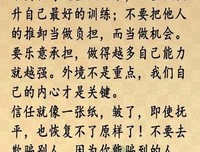 升自己最好的训练；不要把他人
的推卸当做负担，而当做机会。
要乐意承担，做得越多自己能力
就越强。外境不是重点，我们自
己的内心才是关键。
信任就像一张纸，皱了，即使抚
平，也恢复不了原样了！不要去
欺骗别人，因为你能骗到的人，